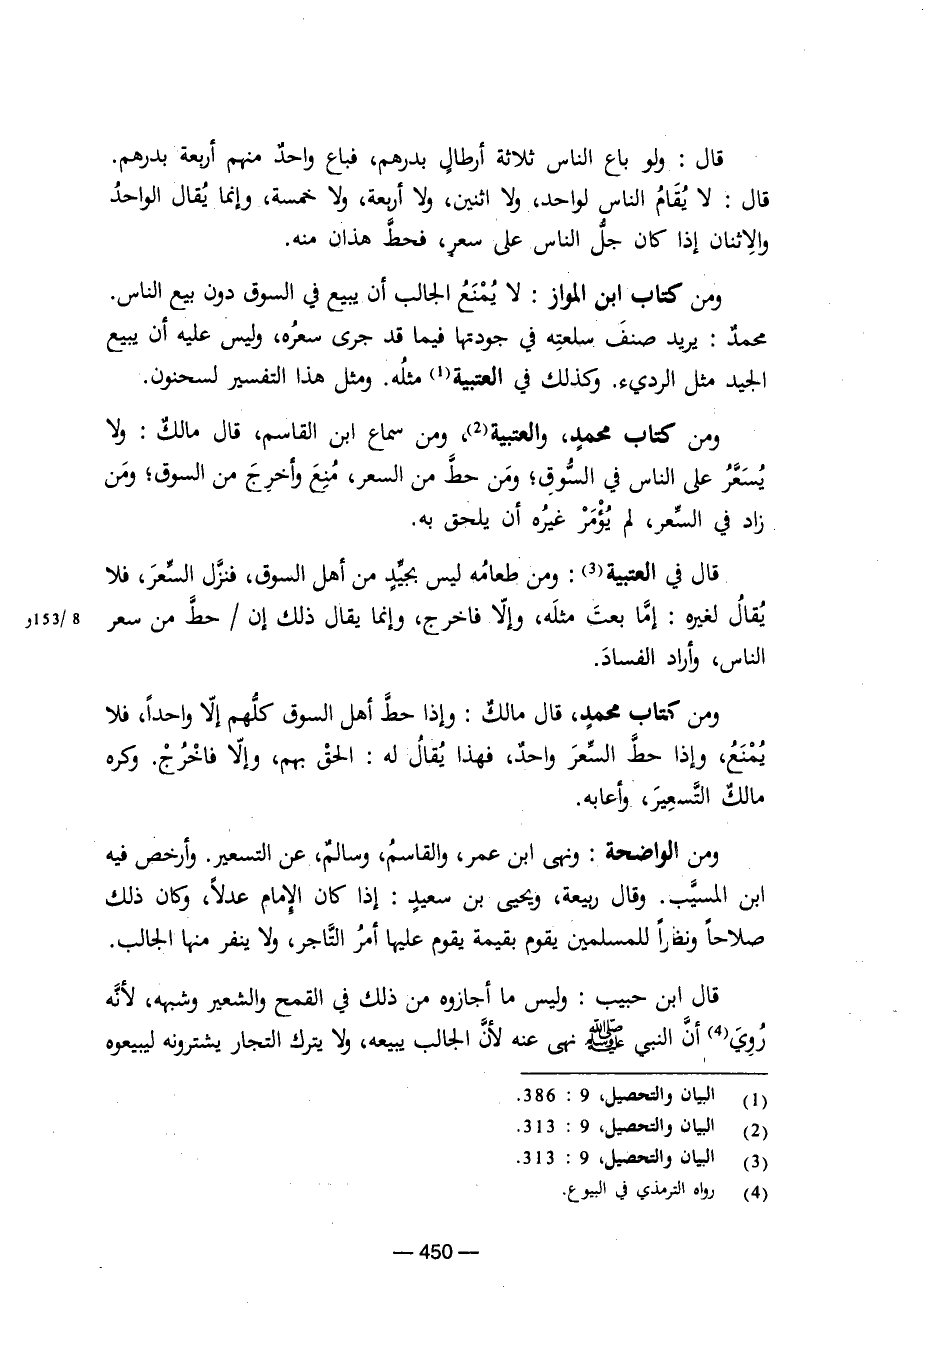 قال : ولو باع الناس ثلاثة أرطالٍ بدرهم، فباع واحدٌ منهم أربعة بدرهم.
قال : لا يُقَامُ الناس لواحد، ولا اثنين، ولا أربعة، ولا خمسة، وإنما يُقال الواحدُ
والاِثنان إذا كان جلُّ الناس على سعرٍ، فحطَّ هذان منه.
ومن كتاب ابن المواز : لا يُمْنَعُ الجالب أن يبيع في السوق دون بيع الناس.
محمدٌ : يريد صنفَ سلعتِه في جودتها فيما قد جرى سعرُه، وليس عليه أن يبيع
الجيد مثل الرديء. وكذلك في العتبية(1) مثلُه. ومثل هذا التفسير لسحنون.
ومن كتاب محمدٍ، والعتبية(2)، ومن سماع ابن القاسم، قال مالكٌ : ولا
يُسَعَّرُ على الناس في السُّوقِ؛ ومَن حطَّ من السعر، مُنِعَ وأخرِجَ من السوق؛ ومَن
زاد في السِّعر، لم يُؤْمَرْ غيرُه أن يلحق به.
قال في العتبية(3) : ومن طعامُه ليس بجيِّدٍ من أهل السوق، فنزَّل السِّعرَ، فلا
يُقالُ لغيره : إمَّا بعتَ مثلَه، وإلّا فاخرج، وإنما يقال ذلك إن / حطَّ من سعر 8 /153و
الناس، وأراد الفسادَ.
ومن كتاب محمدٍ، قال مالكٌ : وإذا حطَّ أهل السوق كلُّهم إلّا واحداً، فلا
يُمْنَعُ، وإذا حطَّ السِّعرَ واحدٌ، فهذا يُقالُ له : الحقْ بهم، وإلّا فاخْرُجْ. وكره
مالكٌ التَّسعِيرَ، وأعابه.
ومن الواضحة : ونهى ابن عمر، والقاسمُ، وسالمٌ، عن التسعير. وأرخص فيه
ابن المسيَّب. وقال ربيعة، ويحيى بن سعيدٍ : إذا كان الإمام عدلاً، وكان ذلك
صلاحاً ونظراً للمسلمين يقوم بقيمة يقوم عليها أمرُ التَّاجر، ولا ينفر منها الجالب.
قال ابن حبيب : وليس ما أجازوه من ذلك في القمح والشعير وشبهه، لأنَّه
رُوِيَ(4) أنَّ النبي ﷺ نهى عنه لأنَّ الجالب يبيعه، ولا يترك التجار يشترونه ليبيعوه
(1) البيان والتحصيل، 9 : 386.
(2) البيان والتحصيل، 9 : 313.
(3) البيان والتحصيل، 9 : 313.
(4) رواه الترمذي في البيوع.
— 450 —